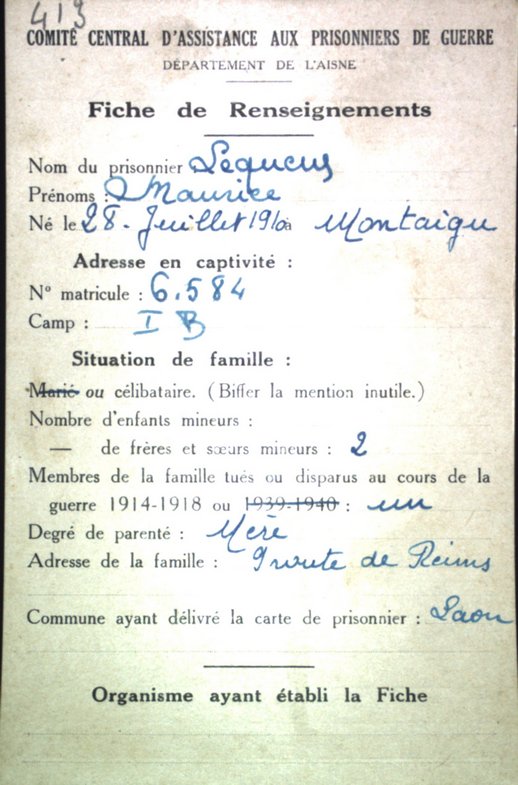 413
COMITÉ CENTRAL D'ASSISTANCE AUX PRISONNIERS DE GUERRE
DÉPARTEMENT DE L'AISNE
Fiche de Renseignements
Nom du prisonnier Lequeux
Prénoms : Maurice
Né le 28. Juillet 1910 à Montaigu
Adresse en captivité :
N° matricule : 6.584
Camp : I B
Situation de famille :
Marié ou célibataire. (Biffer la mention inutile.)
Nombre d'enfants mineurs :
— de frères et sœurs mineurs : 2
Membres de la famille tués ou disparus au cours de la
guerre 1914-1918 ou 1939-1940 : un
Degré de parenté : Mère
Adresse de la famille : 9 route de Reims
Commune ayant délivré la carte de prisonnier : Laon
Organisme ayant établi la Fiche